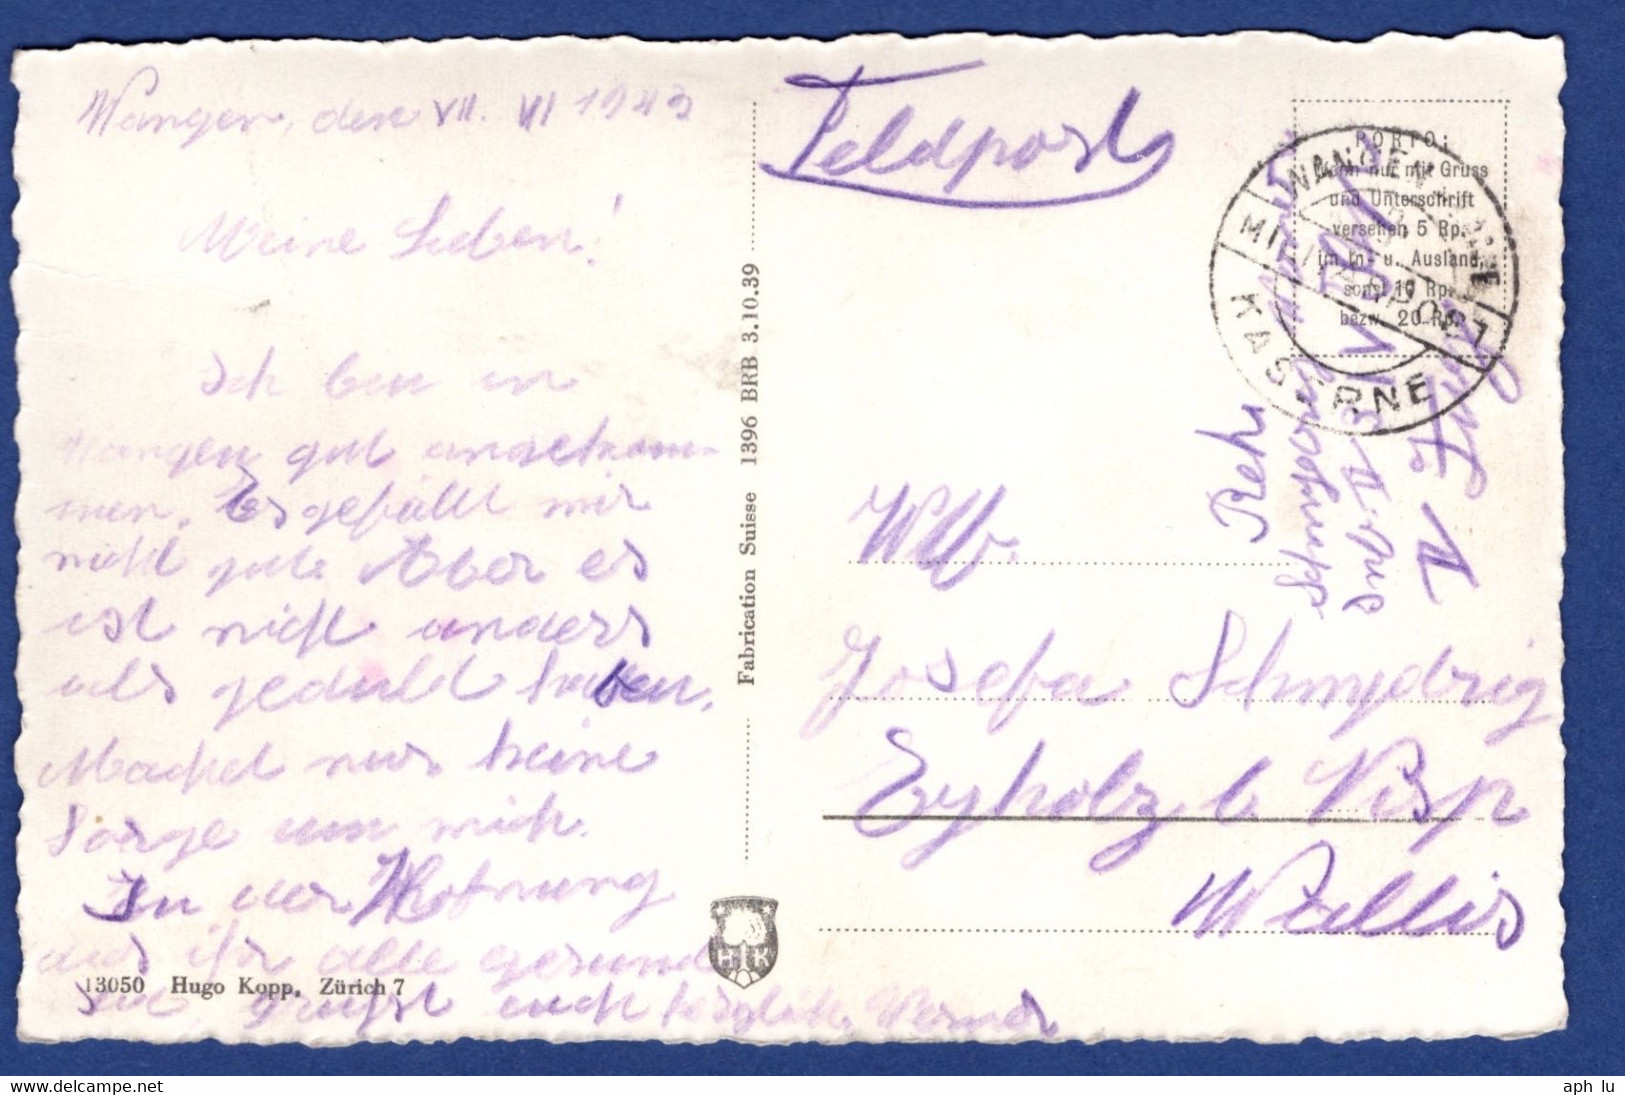 Wangen, den VII. VI 1943
Meine Lieben!
Ich bin in
Wangen gut angekom-
men. Es gefällt mir
nicht gut. Aber es
ist nicht anders
als geduld haben.
Machet nur keine
Sorge um mich.
In der Hofnung
das ihr alle gesund
seid, grüsst euch herzlich. Werner
13050 Hugo Kopp, Zürich 7
Fabrication Suisse 1396 BRB 3.10.39
H K
Feldpost
PORTO:
Wenn nur mit Gruss
und Unterschrift
versehen 5 Rp.
im In- u. Ausland,
sonst 10 Rp.
bezw. 20 Rp.
WANGEN AARE
MILITÄRPOST
KASERNE
Rek.
Werner
Wb.
Josefa Schmydrig
Eyholz b. Visp
Wallis
delcampe.net
aph lu